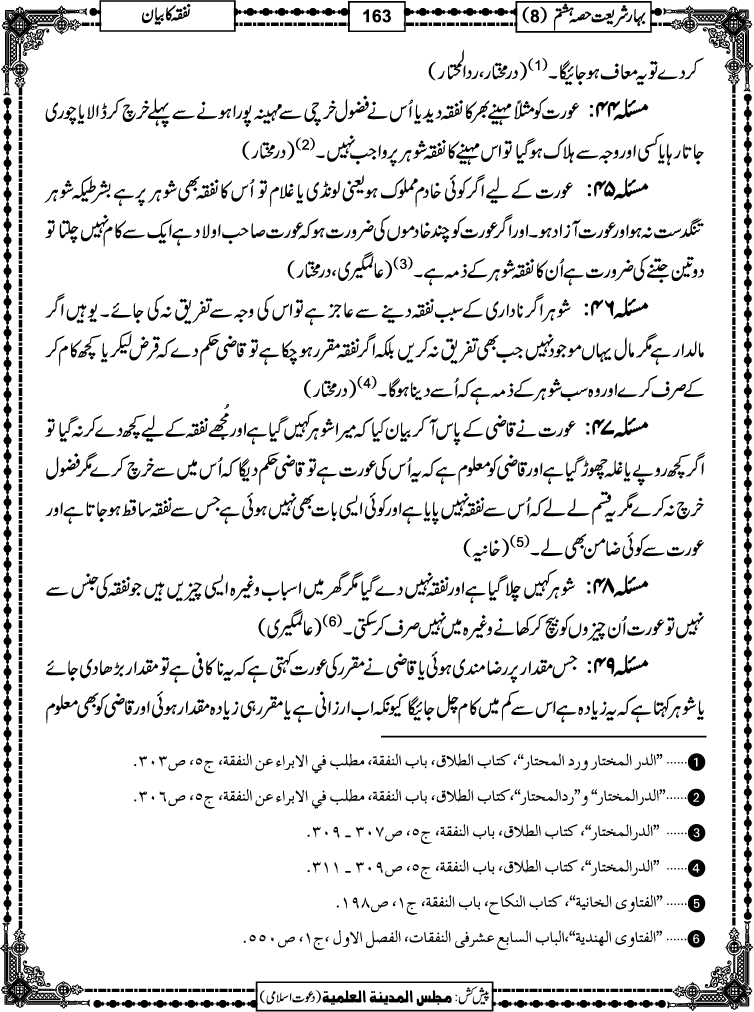 بہار شریعت حصہ ہشتم (8)
163
نفقہ کا بیان
کردے تو یہ معاف ہو جائیگا۔(1) (درمختار، ردالمحتار)
مسئلہ ۴۴: عورت کو مثلاً مہینے بھر کا نفقہ دیدیا اُس نے فضول خرچی سے مہینہ پورا ہونے سے پہلے خرچ کر ڈالا یا چوری
جاتا رہا یا کسی اور وجہ سے ہلاک ہو گیا تو اس مہینے کا نفقہ شوہر پر واجب نہیں۔(2) (درمختار)
مسئلہ ۴۵: عورت کے لیے اگر کوئی خادم مملوک ہو یعنی لونڈی یا غلام تو اُس کا نفقہ بھی شوہر پر ہے بشرطیکہ شوہر
تنگدست نہ ہو اور عورت آزاد ہو۔ اور اگر عورت کو چند خادموں کی ضرورت ہو کہ عورت صاحب اولاد ہے ایک سے کام نہیں چلتا تو
دو تین جتنے کی ضرورت ہے اُن کا نفقہ شوہر کے ذمہ ہے۔(3) (عالمگیری، درمختار)
مسئلہ ۴۶: شوہر اگر ناداری کے سبب نفقہ دینے سے عاجز ہے تو اس کی وجہ سے تفریق نہ کی جائے۔ یوہیں اگر
مالدار ہے مگر مال یہاں موجود نہیں جب بھی تفریق نہ کریں بلکہ اگر نفقہ مقرر ہو چکا ہے تو قاضی حکم دے کہ قرض لیکر یا کچھ کام کر
کے صرف کرے اور وہ سب شوہر کے ذمہ ہے کہ اُسے دینا ہوگا۔(4) (درمختار)
مسئلہ ۴۷: عورت نے قاضی کے پاس آکر بیان کیا کہ میرا شوہر کہیں گیا ہے اور مُجھے نفقہ کے لیے کچھ دے کر نہ گیا تو
اگر کچھ روپے یا غلہ چھوڑ گیا ہے اور قاضی کو معلوم ہے کہ یہ اُس کی عورت ہے تو قاضی حکم دیگا کہ اُس میں سے خرچ کرے مگر فضول
خرچ نہ کرے مگر یہ قسم لے لے کہ اُس سے نفقہ نہیں پایا ہے اور کوئی ایسی بات بھی نہیں ہوئی ہے جس سے نفقہ ساقط ہو جاتا ہے اور
عورت سے کوئی ضامن بھی لے۔(5) (خانیہ)
مسئلہ ۴۸: شوہر کہیں چلا گیا ہے اور نفقہ نہیں دے گیا مگر گھر میں اسباب وغیرہ ایسی چیزیں ہیں جو نفقہ کی جنس سے
نہیں تو عورت اُن چیزوں کو بیچ کر کھانے وغیرہ میں نہیں صرف کر سکتی۔(6) (عالمگیری)
مسئلہ ۴۹: جس مقدار پر رضا مندی ہوئی یا قاضی نے مقرر کی عورت کہتی ہے کہ یہ نا کافی ہے تو مقدار بڑھا دی جائے
یا شوہر کہتا ہے کہ یہ زیادہ ہے اس سے کم میں کام چل جائیگا کیونکہ اب ارزانی ہے یا مقرر ہی زیادہ مقدار ہوئی اور قاضی کو بھی معلوم
1 ...... ”الدر المختار ورد المحتار“، کتاب الطلاق، باب النفقة، مطلب في الابراء عن النفقة، ج٥، ص٣٠٣.
2 ...... ”الدرالمختار“ و”ردالمحتار“، کتاب الطلاق، باب النفقة، مطلب في الابراء عن النفقة، ج٥، ص٣٠٦.
3 ...... ”الدرالمختار“، کتاب الطلاق، باب النفقة، ج٥، ص٣٠٧ ـ ٣٠٩.
4 ...... ”الدرالمختار“، کتاب الطلاق، باب النفقة، ج٥، ص٣٠٩ ـ ٣١١.
5 ...... ”الفتاوی الخانية“، کتاب النکاح، باب النفقة، ج١، ص١٩٨.
6 ...... ”الفتاوی الهندية“،الباب السابع عشرفی النفقات، الفصل الاول ،ج١، ص٥٥٠.
پیش کش: مجلس المدینة العلمیة (دعوت اسلامی)